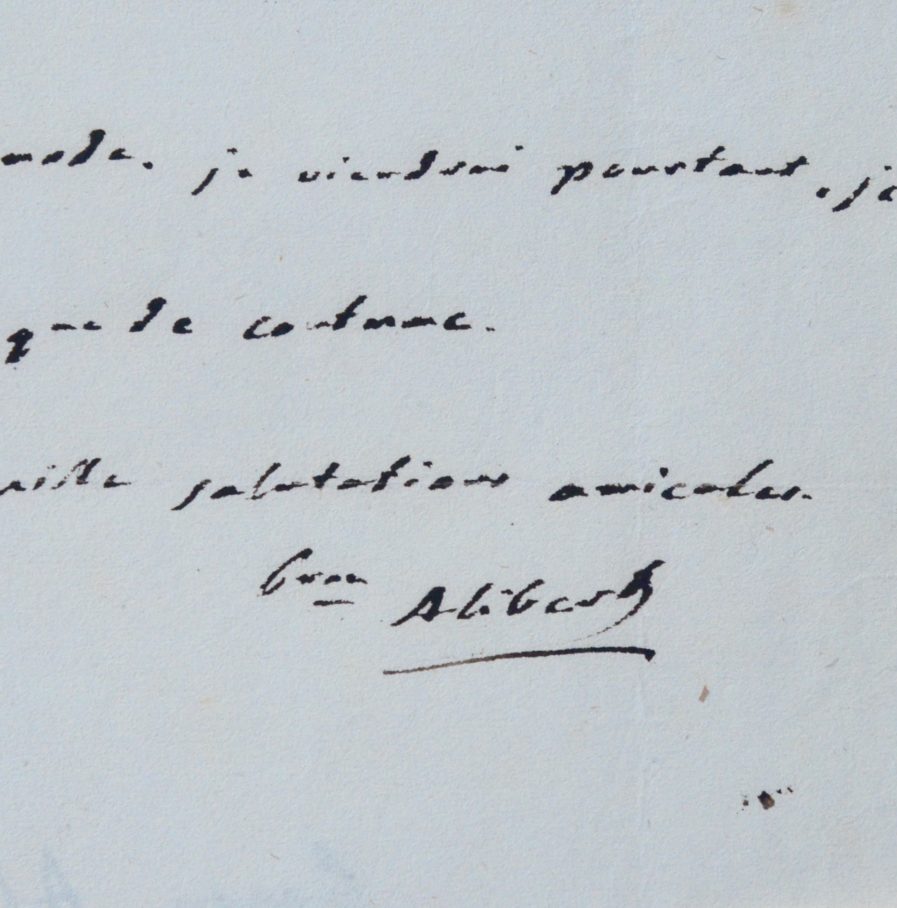 mode. je viendrai pourtant, je
que de coutume.
mille salutations amicales.
bron Alibert